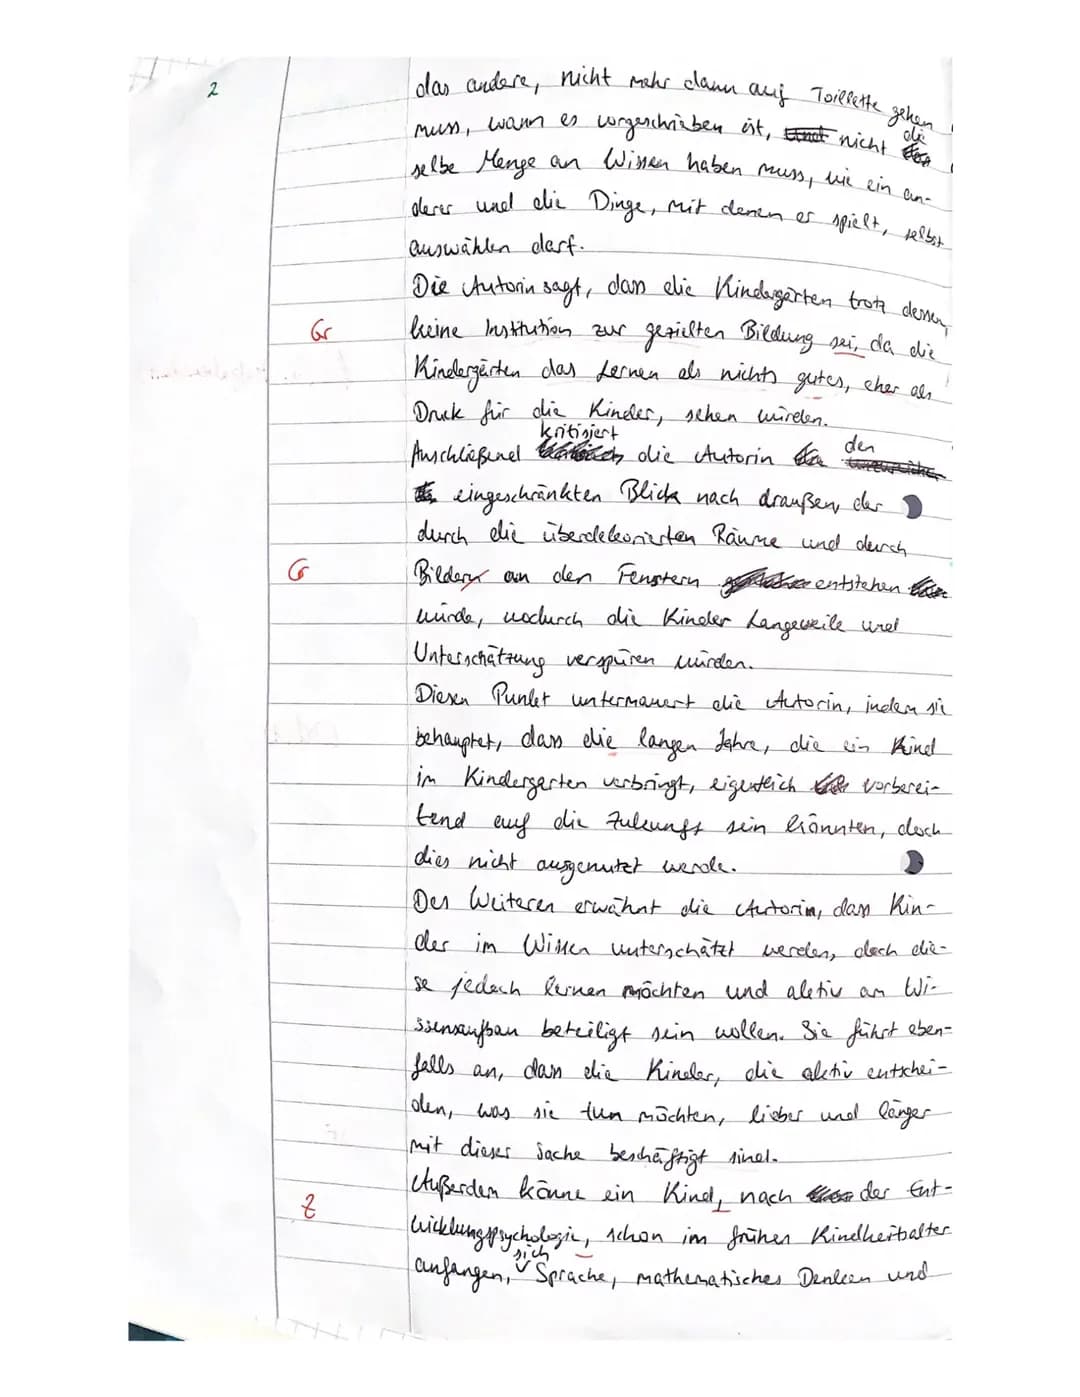 2
das andere, nicht mehr dann auf Toillette gehen
muss, wann es vorgeschrieben ist, nicht die
selbe Menge an Wissen haben muss, wie ein an-
derer und die Dinge, mit denen er spielt, selbst
auswählen darf.
Die Autorin sagt, dass die Kindergärten trotz dessen
Gr keine Institution zur gezielten Bildung sei, da die
Kindergärten das Lernen als nichts gutes, eher als
Druck für die Kinder, sehen würden.
Anschließend kritisiert die Autorin den
eingeschränkten Blick nach draußen, der
durch die überdekorierten Räume und durch
G Bildern an den Fenstern entstehen
würde, wodurch die Kinder Langeweile und
Unterschätzung verspüren würden.
Diesen Punkt untermauert die Autorin, indem sie
behauptet, dass die langen Jahre, die ein Kind
im Kindergarten verbringt, eigentlich vorberei-
tend auf die Zukunft sein könnten, doch
dies nicht ausgenutzt werde.
Des Weiteren erwähnt die Autorin, dass Kin-
der im Wissen unterschätzt werden, doch die-
se jedoch lernen möchten und aktiv am Wi-
ssensaufbau beteiligt sein wollen. Sie führt eben-
falls an, dass die Kinder, die aktiv entschei-
den, was sie tun möchten, lieber und länger
mit dieser Sache beschäftigt sind.
Außerdem könne ein Kind, nach der Ent-
Z wicklungspsychologie, schon im frühen Kindheitsalter
anfangen, sich Sprache, mathematisches Denken und